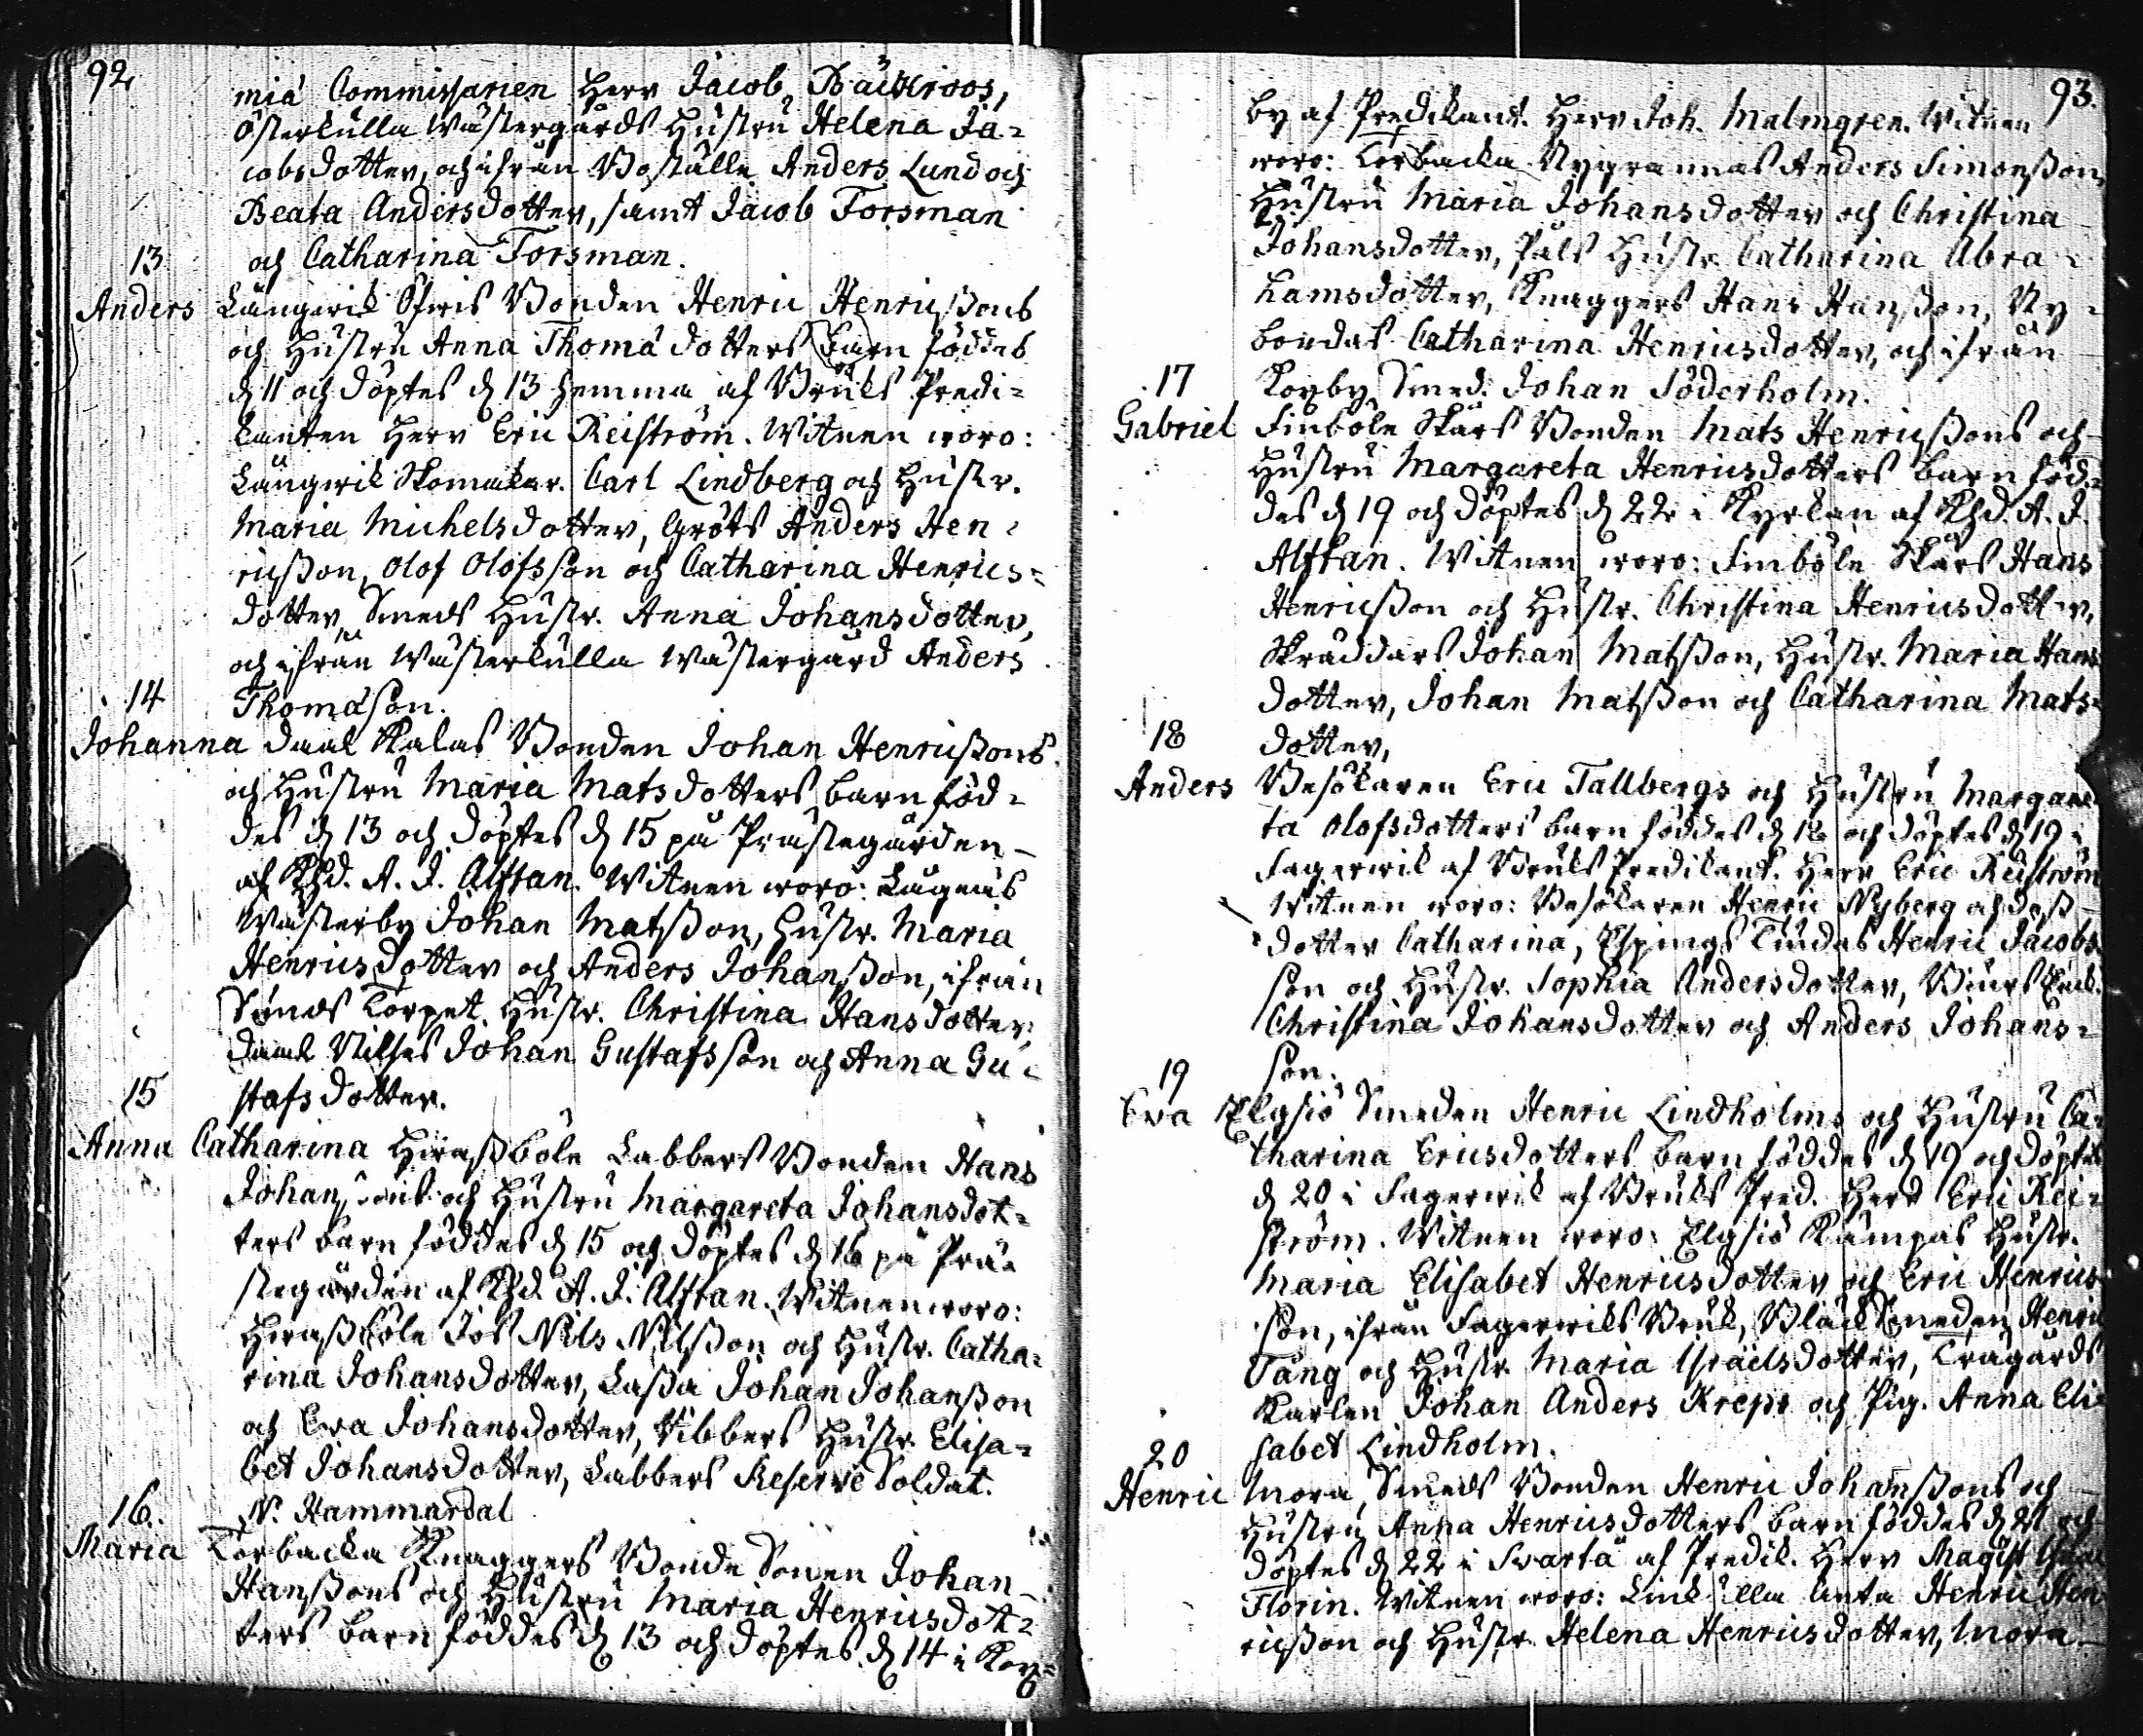 92
mia Commissarien Herr Jacob Bäckroos,
Österkulla Wästergårds Hustru Helena Ja=
cobsdotter, och ifrån Boställe Anders Lund och
Beata Andersdotter, samt Jacob Forsman
och Catharina Forsman.
13
Anders Långwik Öfwis Bonden Henric Henricßons
och Hustru Anna Thomædotters Barn föddes
d 11 och döptes d 13 hemma af Bruks Predi=
kanten Herr Eric Reiström. Witnen woro:
Långwik Skomakar. Carl Lindberg och Hustr.
Maria Michelsdotter, Gröts Anders Hen=
ricßon, Olof Olofsson och Catharina Henrics=
dotter Smeds Hustr. Anna Johansdotter,
och ifrån Wästerkulla Wästergård Anders
Thomæson.
14
Johanna Daal Kalas Bonden Johan Henricßons
och Hustru Maria Matsdotters Barn föd=
des d 13 och döptes d 15 på Prästegården
af Khd. A. J. Alftan. Witnen woro: Lågnäs
Wästerby Johan Matsßon, Hustr. Maria
Henricsdotter och Anders Johansßon, ifrån
Torpet. Hustr. Christina Hansdotter,
Daal Nilses Johan Gustafsson och Anna Gu=
stafsdotter.
15
Anna Catharina Hiraßböle Labbers Bonden Hans
Johansßons och Hustru Margareta Johansdot=
ters Barn föddes d 15 och döptes d 16 på Prä=
stegården af Khd. A. J. Alftan. Witnen woro:
Hiraßböle Jos Nils Nilsßon och Hustr. Catha=
rina Johansdotter, Laßa Johan Johanßon
och Eva Johansdotter, Wibbers Hustr. Elisa=
bet Johansdotter, Labbers Reserve Soldat.
N. Hammardal
16.
Maria Torbacka Knaggers Bonde Sonen Johan
Hansßons och Hustru Maria Henricsdot=
ters Barn föddes d 13 och döptes d 14 i Kox=
93.
by af Predikant. Herr Joh. Malmgren. Witnen
woro: Torbacka Nygrannas Anders Simonßon,
Hustru Maria Johansdotter och Christina
Johansdotter, Påls Hustr. Catharina Abra=
hamsdotter, Knaggers Hans Hanßon, Ny=
bondas Catharina Henricsdotter, och ifrån
Koxby Smed. Johan Söderholm.
17
Gabriel Finböle Skärs Bonden Mats Henricßons och
Hustru Margareta Henricsdotters Barn föd=
des d 19 och döptes d 22 i Kyrkan af Khd. A. J.
Alftan. Witnen woro: Finböle Skärs Hans
Henricßon och Hustr. Christina Henricsdotter,
Skräddars Johan Matsßon, Hustr. Maria Hans
dotter, Johan Matsßon och Catharina Mats=
dotter,
18
Anders Besökaren Eric Tallbergs och Hustru Margare
ta Olofsdotters Barn föddes d 18 och döptes d 19 i
Fagerwik af Bruks Predikant. Herr Eric Reiström
Witnen woro: Besökaren Henric Nyberg och deß
dotter Catharina, Espings Lindas Henric Jacobs
son och Hustr. Sophia Andersdotter,
Christina Johansdotter och Anders Johans=
son.
19
Eva Elgsiö Smeden Henric Lindholms och Hustru Ca=
tharina Ericsdotters Barn föddes d 19 och döptes
d 20 i Fagerwik af Bruks Pred. Herr Eric Rei=
ström. Witnen woro: Elgsiö Kämpas Hustr.
Maria Elisabet Henricsdotter och Eric Henrics
son, ifrån Fagerwiks Bruk, Bläck Smeden Henric
Tång och Hustr. Maria Israelsdotter, Trägårds
Karlen Johan Anders Kreps och Pig. Anna Eli=
sabet Lindholm.
20
Henric Mora, Smeds Bonden Henric Johanßons och
Hustru Anna Henricsdotters Barn föddes d 21 och
döptes d 22 i Svartå af Predik. Herr Magist
Florin. Witnen woro: Henric Hen
ricßon och Hustr. Helena Henricsdotter, Mora